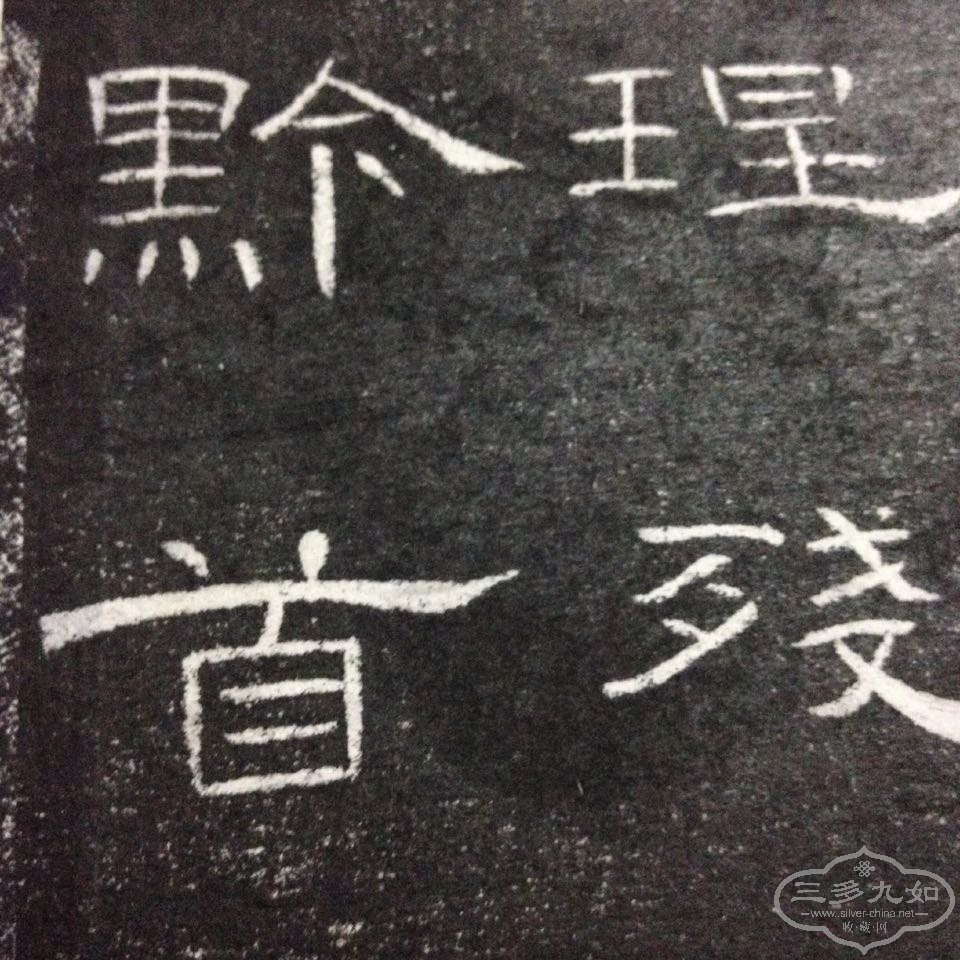 理殘
黔首
三多九如
www.silver-china.net
收·藏·网